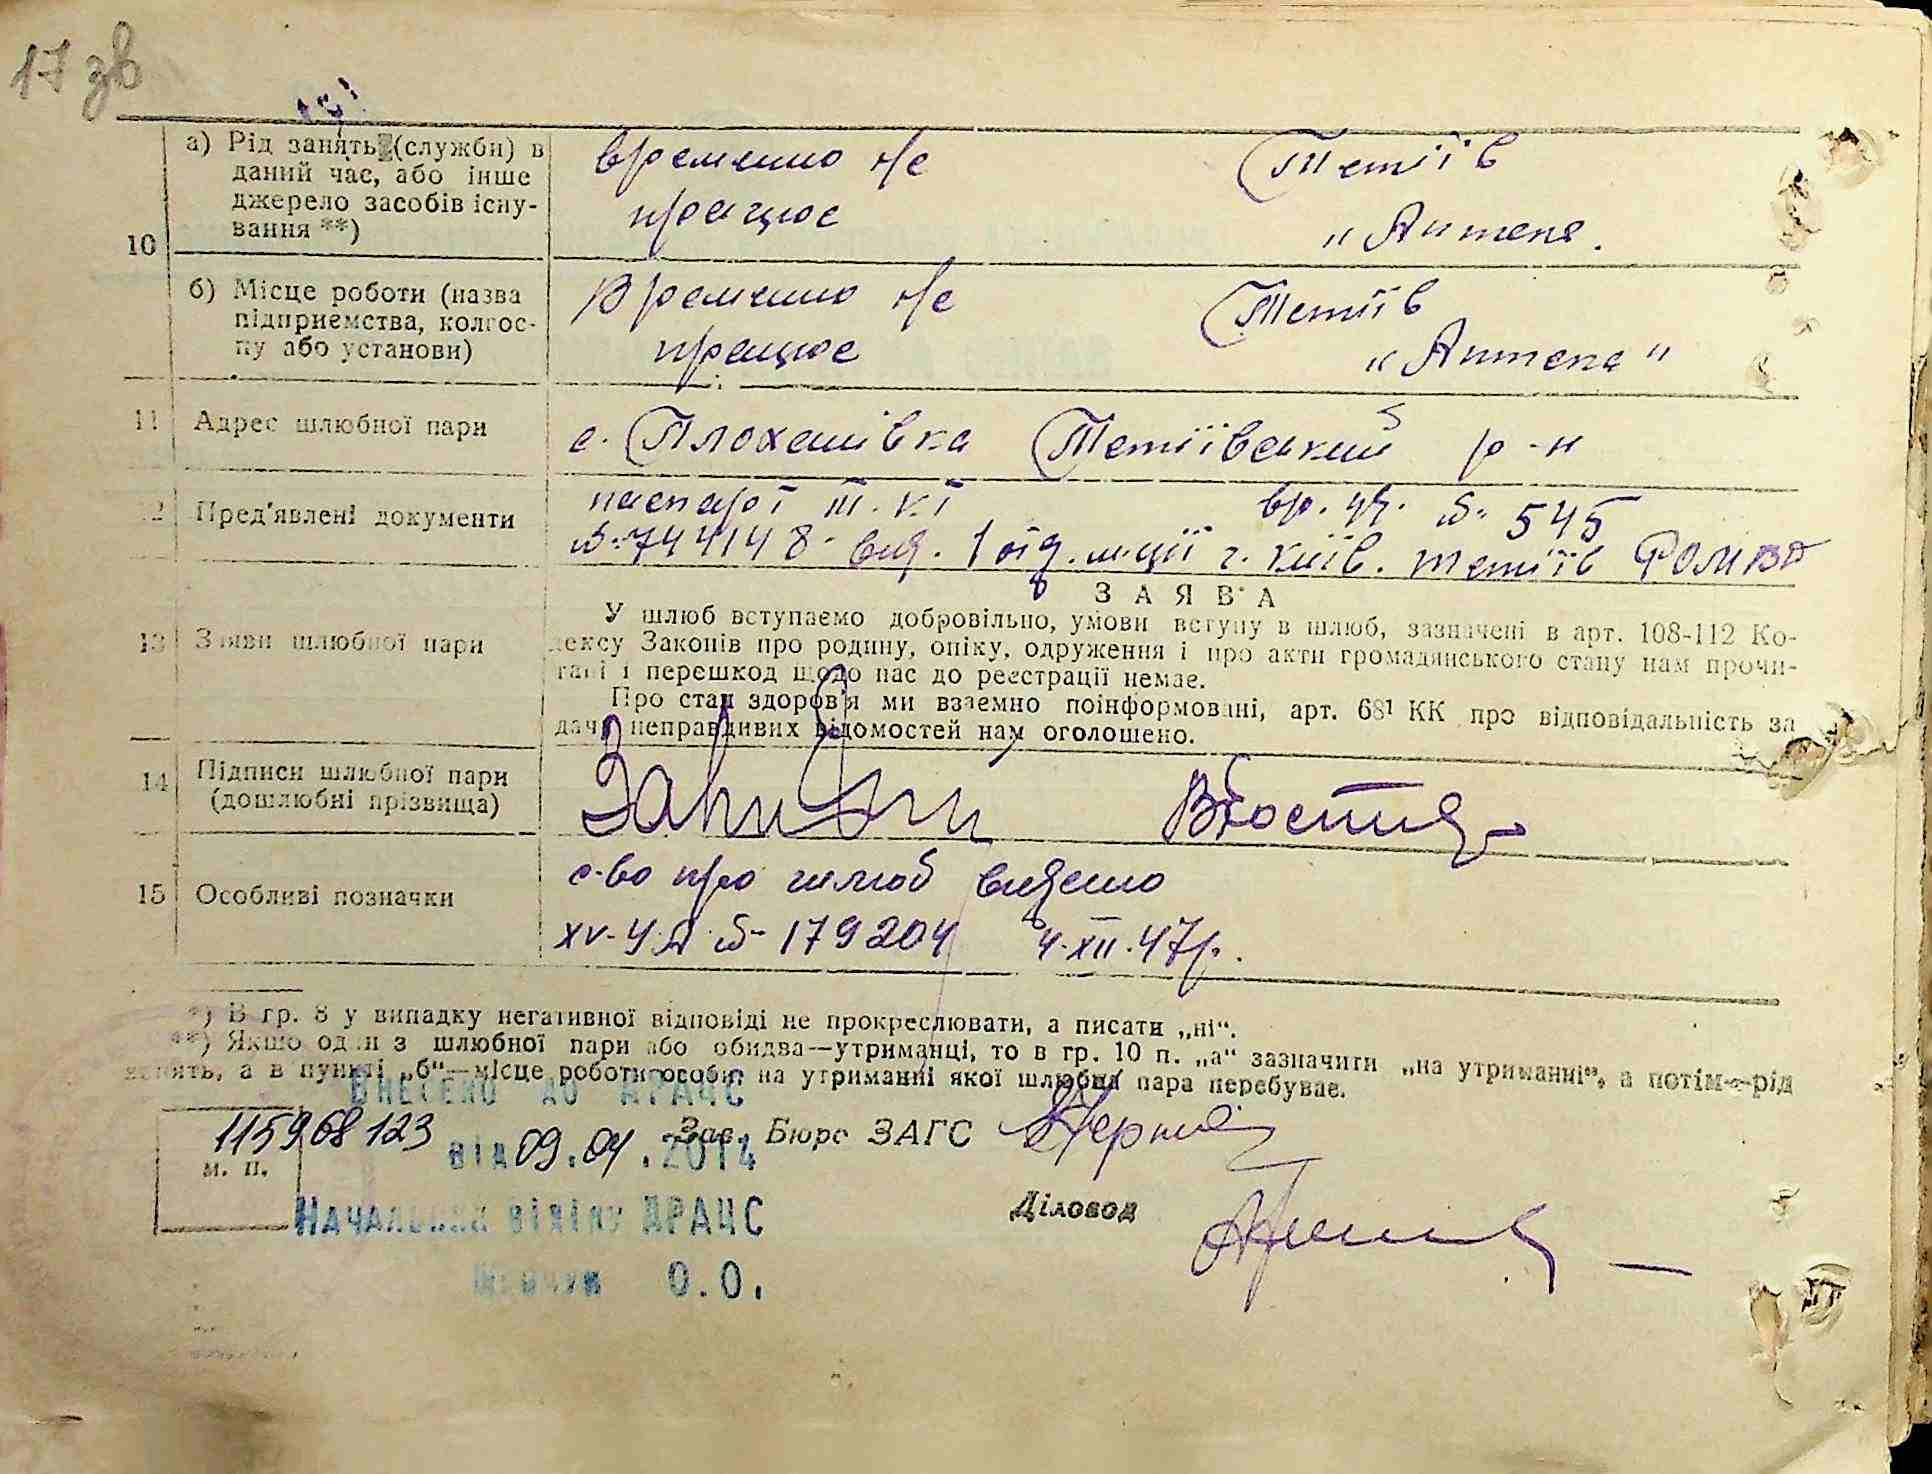 17 зв
а) Рід занять (служби) в
даний час, або інше
джерело засобів існу-
вання **)
временно не
працює
Тетіїв
„Аптека.
10
б) Місце роботи (назва
підприємства, колгос-
пу або установи)
Временно не
працює
Тетіїв
„Аптека"
11 Адрес шлюбної пари
с. Плоханівка Тетіївський р-н
12 Пред'явлені документи
паспорт
№ 744148 вид. 1 від. міції г. Київ.
вр. № 545
Тетіїв
13 Заяви шлюбної пари
ЗАЯВА
У шлюб вступаємо добровільно, умови вступу в шлюб, зазначені в арт. 108-112 Ко-
дексу Законів про родину, опіку, одруження і про акти громадянського стану нам прочи-
тані і перешкод щодо нас до реєстрації немає.
Про стан здоров'я ми взаємно поінформовані, арт. 68¹ КК про відповідальність за
дачу неправдивих відомостей нам оголошено.
14 Підписи шлюбної пари
(дошлюбні прізвища)
15 Особливі позначки
с-во про шлюб видано
XV-УА № 179204 4.XII.47р.
*) В гр. 8 у випадку негативної відповіді не прокреслювати, а писати „ні“.
**) Якщо один з шлюбної пари або обидва—утриманці, то в гр. 10 п. „а“ зазначити „на утриманні“, а потім—рід
занять, а в пункті „б“—місце роботи особи, на утриманні якої шлюбна пара перебуває.
Внесено до ДРАЦС
115968123
від 09.04.2014
м. п.
Зав. Бюро ЗАГС
Начальник відділу ДРАЦС
О.О.
Діловод